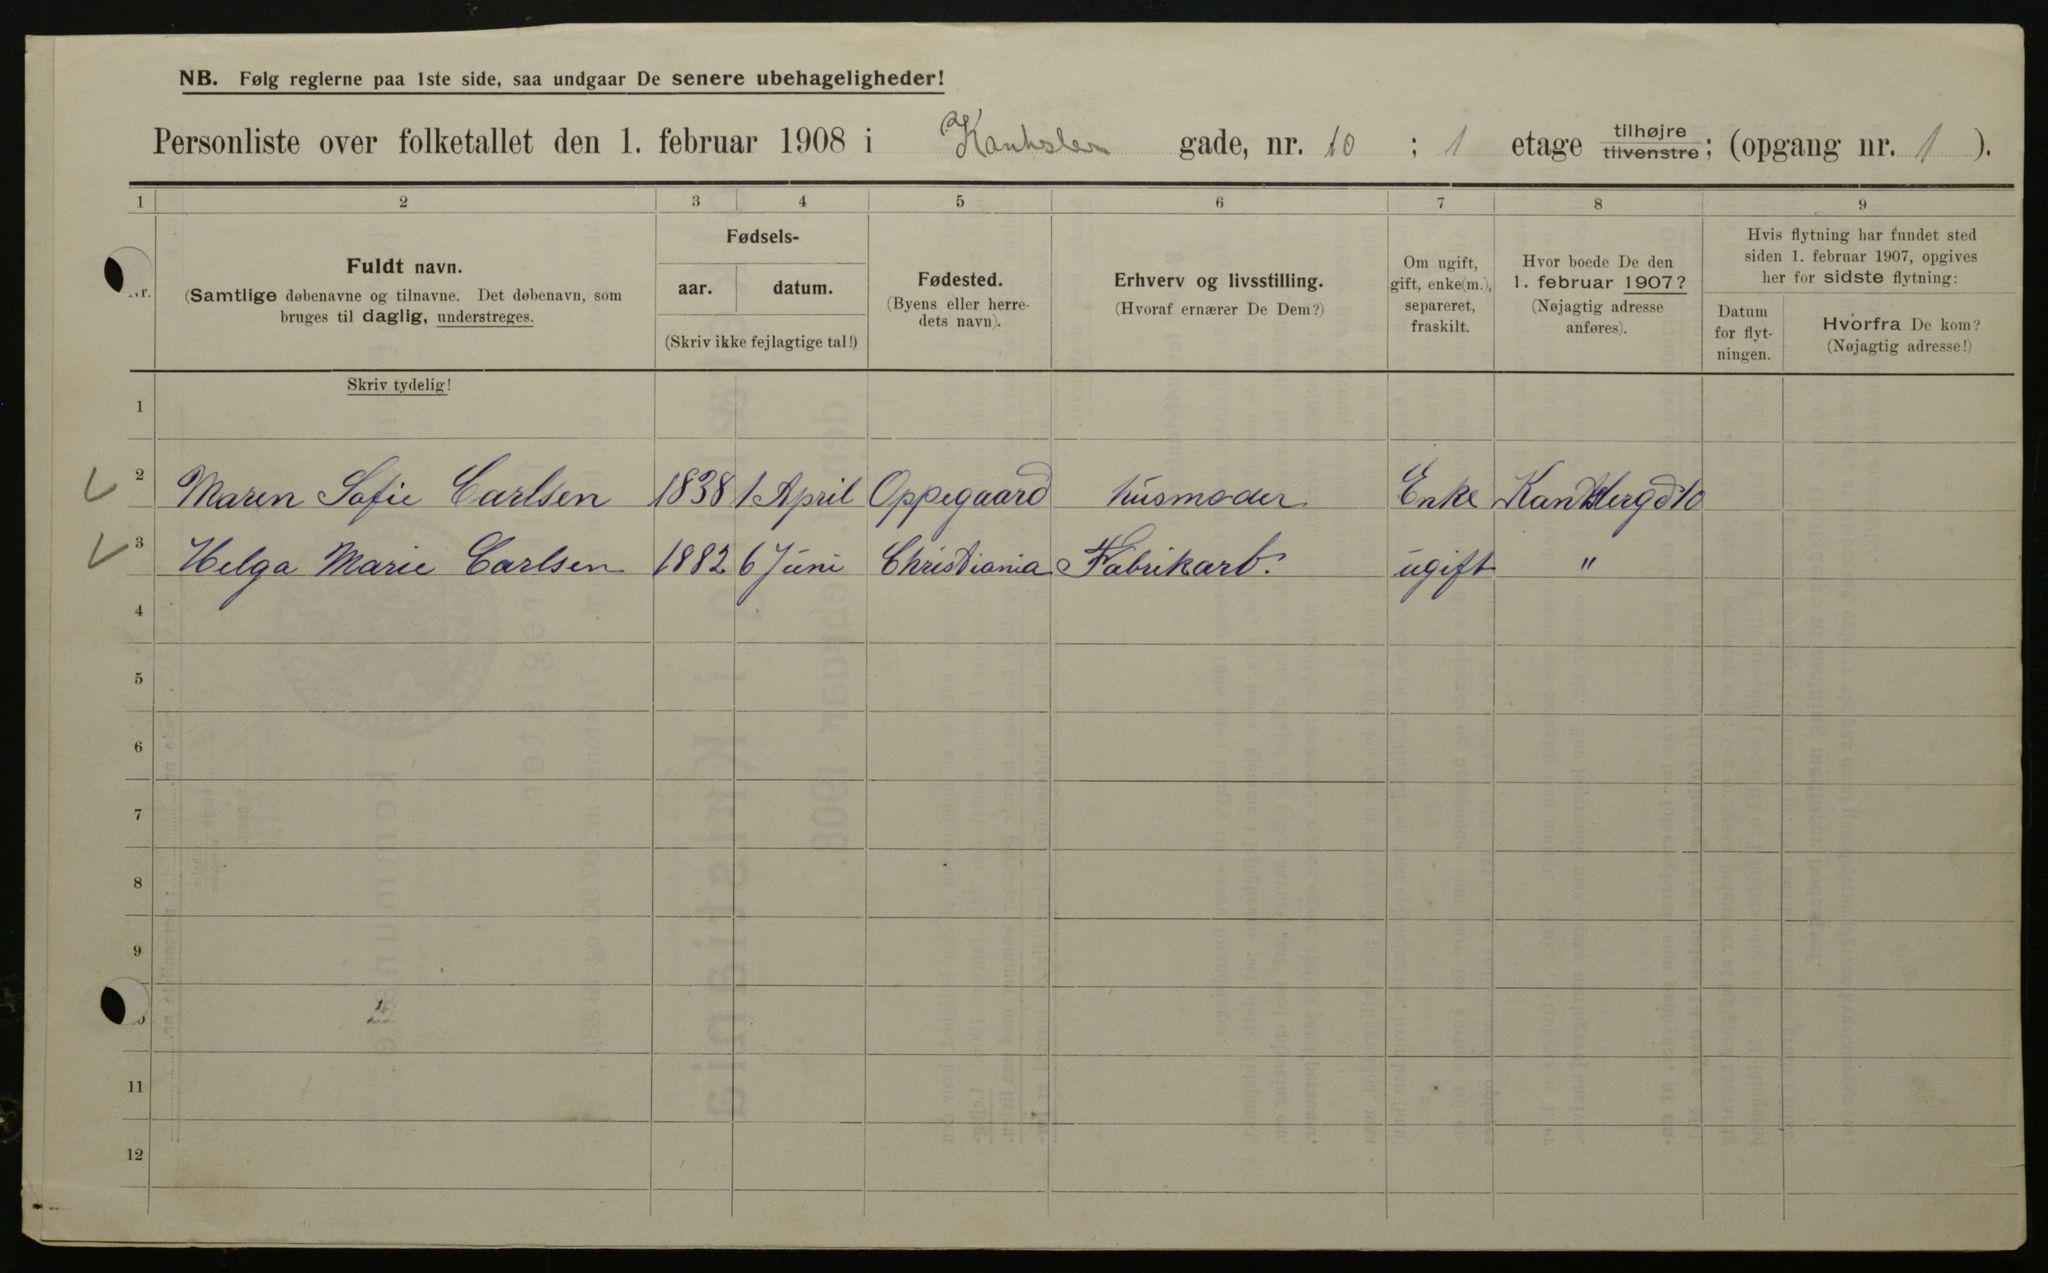 NB. Følg reglerne paa 1ste side, saa undgaar De senere ubehageligheder!
Personliste over folketallet den 1. februar 1908 i Kantsler gade, nr. 10 ; 1 etage tilhøjre tilvenstre ; (opgang nr. 1 ).
1 2 3 4 5 6 7 8 9
Nr.
Fuldt navn.
(Samtlige døbenavne og tilnavne. Det døbenavn, som
bruges til daglig, understreges.
Skriv tydelig!
Fødsels-
aar. datum.
(Skriv ikke fejlagtige tal!)
Fødested.
(Byens eller herre-
dets navn).
Erhverv og livsstilling.
(Hvoraf ernærer De Dem?)
Om ugift,
gift, enke(m.),
separeret,
fraskilt.
Hvor boede De den
1. februar 1907?
(Nøjagtig adresse
anføres).
Hvis flytning har fundet sted
siden 1. februar 1907, opgives
her for sidste flytning:
Datum
for flyt-
ningen.
Hvorfra De kom?
(Nøjagtig adresse!)
1
2 Maren Sofie Carlsen 1838 1 April Oppegaard husmoder Enke Kantslergd 10
3 Helga Marie Carlsen 1882 6 Juni Christiania Fabrikarb. ugift "
4
5
6
7
8
9
11
12